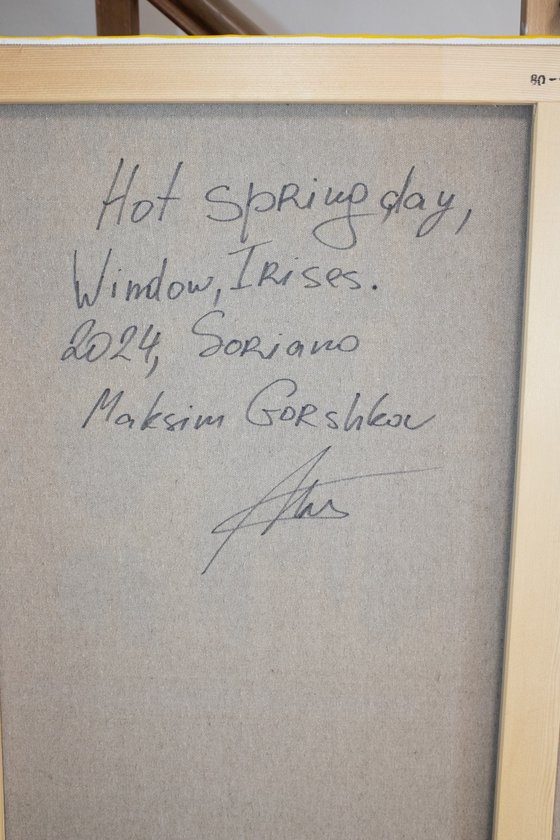 80-
Hot Spring day,
Window, Irises.
2024, Soriano
Maksim Gorshkov